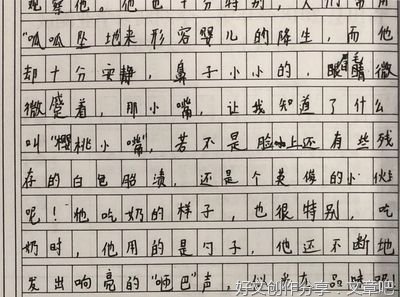 观察他。他也十分特别，人们常用
“呱呱坠地来形容婴儿的降生，而他
却十分安静，鼻子小小的，眼睛微
微蹙着，那小嘴，让我知道了什么
叫“樱桃小嘴”，若不是脸上还有些残
存的白色胎渍，还是个英俊的小伙
呢！他吃奶的样子，也很特别，吃
奶时，他用的是勺子，他还不断地
发出响亮的“咂巴”声，似乎在品味呢！
好文创作分享－文章吧